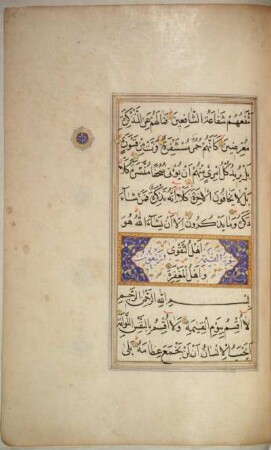 تنفعهم شفاعة الشافعين فما لهم عن التذكرة
معرضين كأنهم حمر مستنفرة فرت من قسورة
بل يريد كل امرئ منهم أن يؤتى صحفا منشرة كلا
بل لا يخافون الآخرة كلا إنه تذكرة فمن شاء
ذكره وما يذكرون إلا أن يشاء الله هو
أهل التقوى
وأهل المغفرة
بسم الله الرحمن الرحيم
لا أقسم بيوم القيمة ولا أقسم بالنفس اللوامة
أيحسب الإنسان أن لن نجمع عظامه بلى